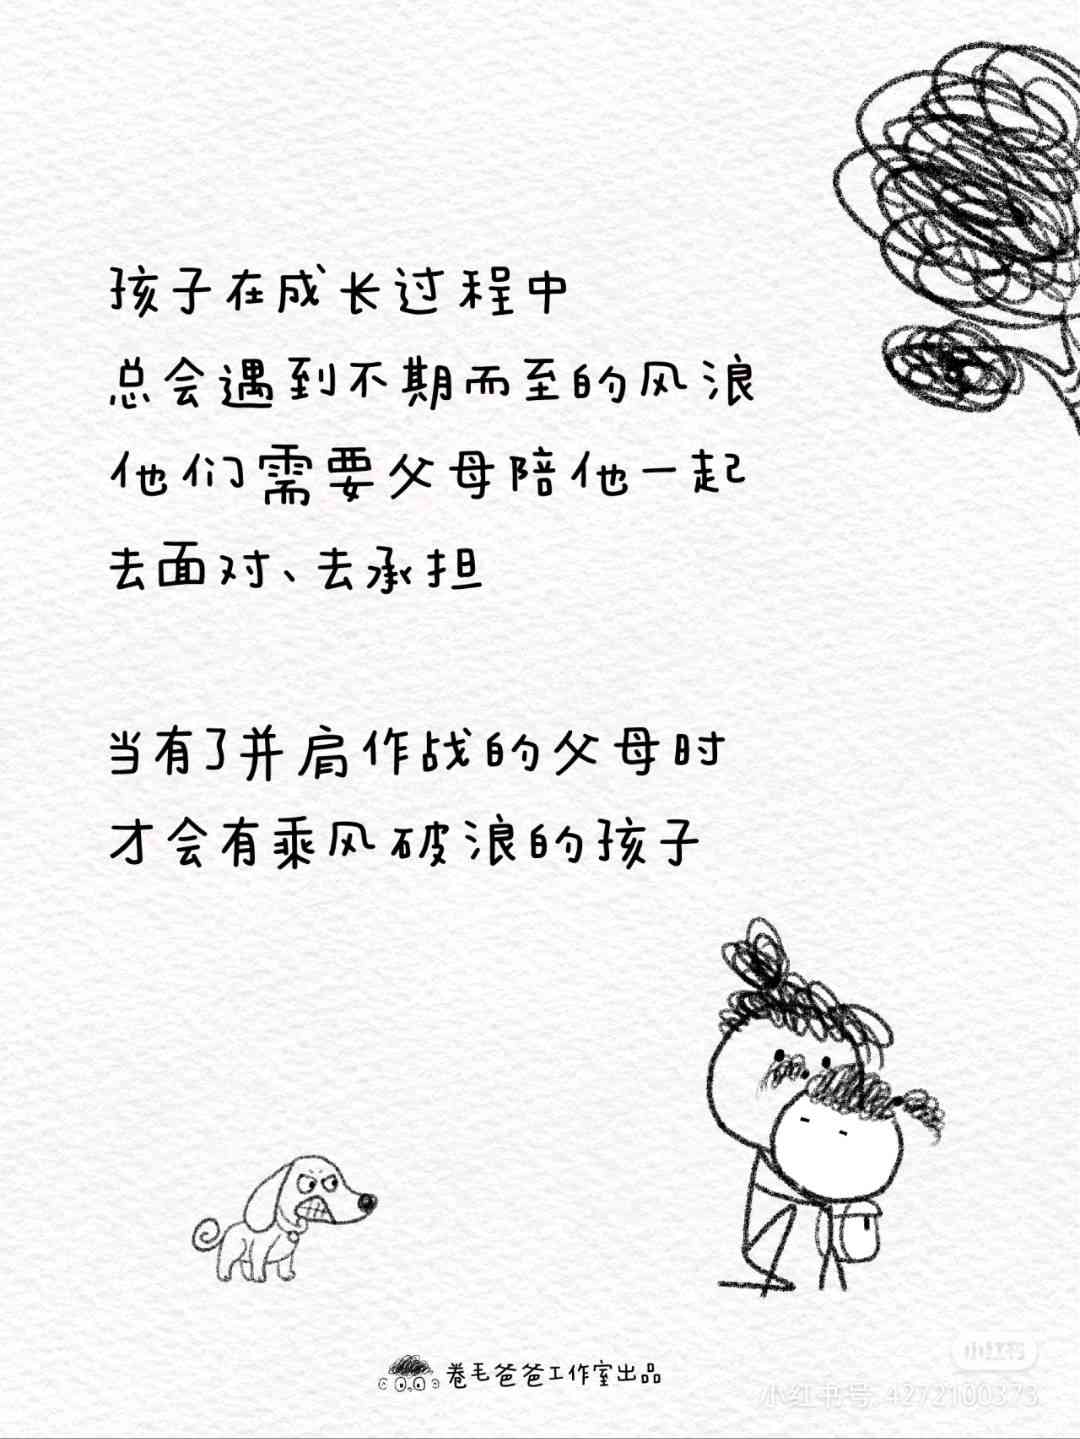 孩子在成长过程中
总会遇到不期而至的风浪
他们需要父母陪他一起
去面对、去承担
当有了并肩作战的父母时
才会有乘风破浪的孩子
卷毛爸爸工作室出品
小红书
小红书号: 4272100373